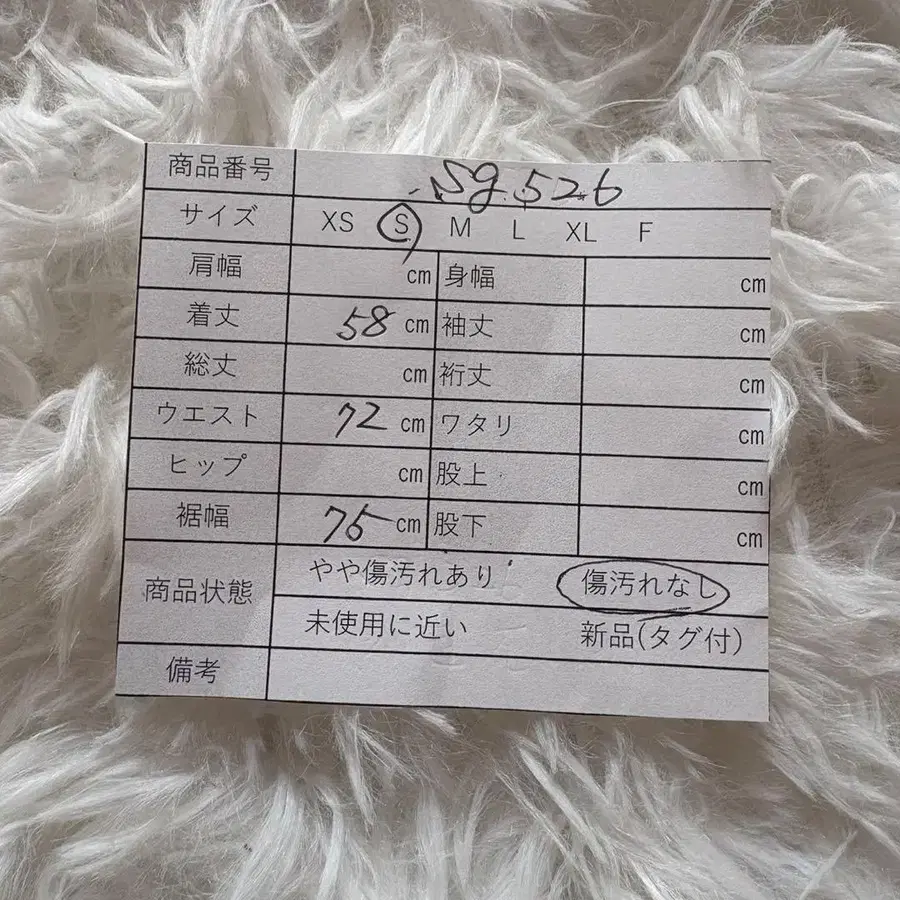 商品番号 Sg.526
サイズ XS S M L XL F
肩幅 cm 身幅 cm
着丈 58 cm 袖丈 cm
総丈 cm 裄丈 cm
ウエスト 72 cm ワタリ cm
ヒップ cm 股上 cm
裾幅 75 cm 股下 cm
商品状態 やや傷汚れあり 傷汚れなし
未使用に近い 新品(タグ付)
備考